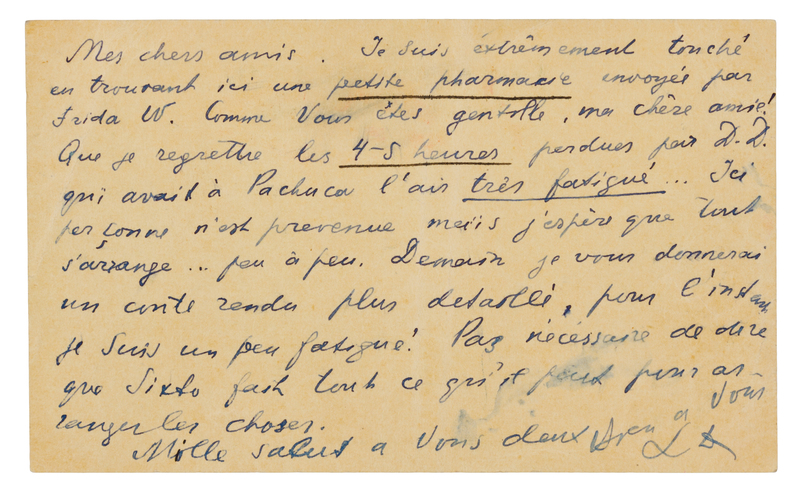 Mes chers amis. Je suis extrêmement touché
en trouvant ici une petite pharmacie envoyée par
Frida W. Comme Vous êtes gentille, ma chère amie!
Que je regrettre les 4-5 heures perdues par D.D.
qui avait à Pachuca l'air très fatigué... Ici
personne n'est prevenue mais j'espère que tout
s'arrange... peu à peu. Demain je vous donnerai
un conte rendu plus detaillé, pour l'instant
je suis un peu fatigué! Pas nécessaire de dire
que Sixto fait tout ce qu'il peut pour ar-
ranger les choses.
Mille saluts a Vous deux a Vous
L D